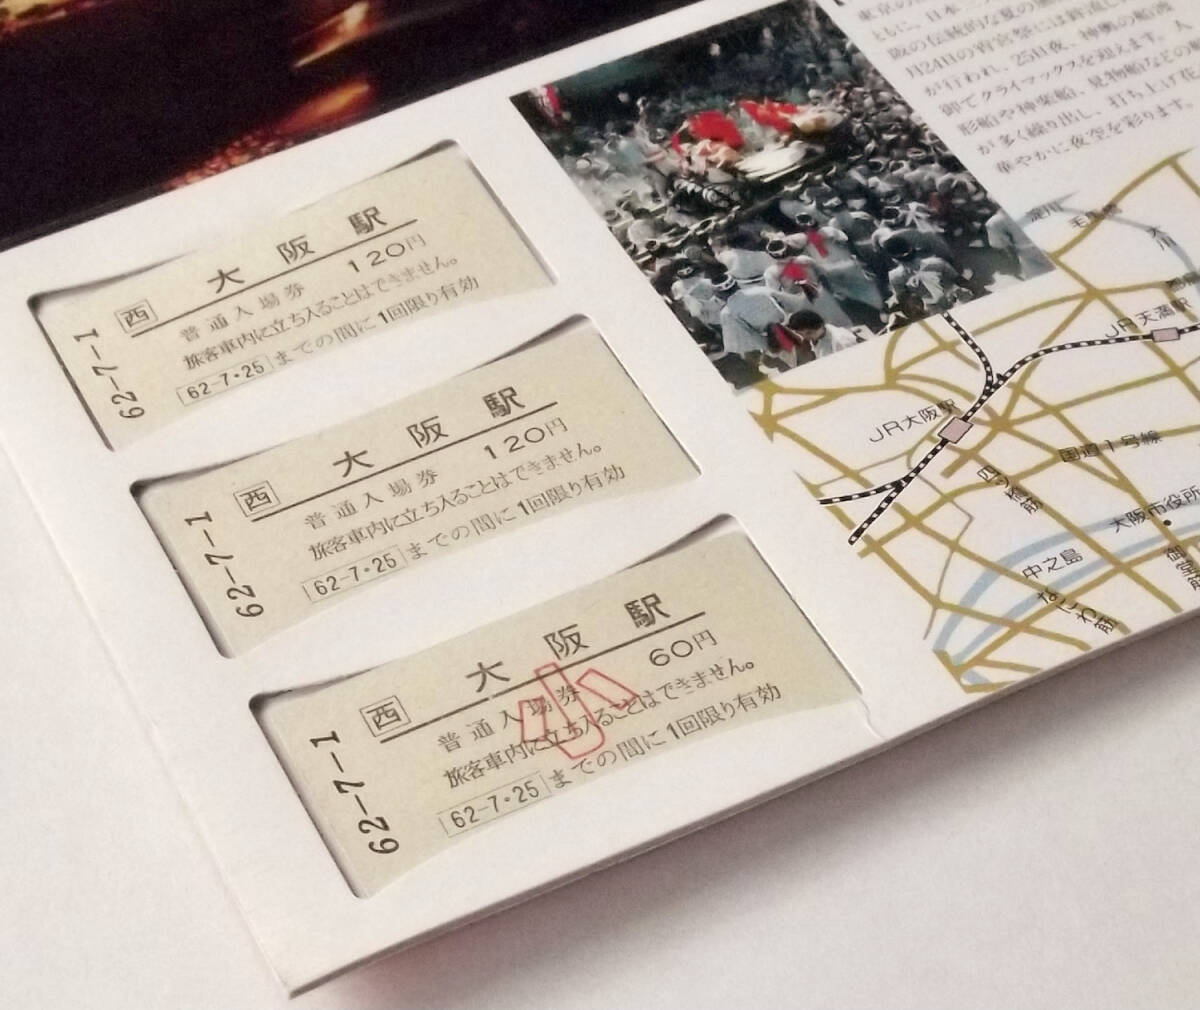 大阪駅
西
普通入場券 120円
旅客車内に立ち入ることはできません。
62-7・25 までの間に1回限り有効
62-7-1
大阪駅
西
普通入場券 120円
旅客車内に立ち入ることはできません。
62-7・25 までの間に1回限り有効
62-7-1
大阪駅
西
普通入場券 60円
小
旅客車内に立ち入ることはできません。
62-7・25 までの間に1回限り有効
62-7-1
ともに、日本三
阪の伝統的な夏の
月24日の宵宮祭には鉾流し
が行われ、25日夜、神輿の船渡
御でクライマックスを迎えます。人
形船や神楽船、見物船などの船
が多く繰り出し、打ち上げ花
華やかに夜空を彩ります。
淀川
JR天満駅
JR大阪駅
国道1号線
四ツ橋筋
大阪市役所
中之島
御堂筋
なにわ筋